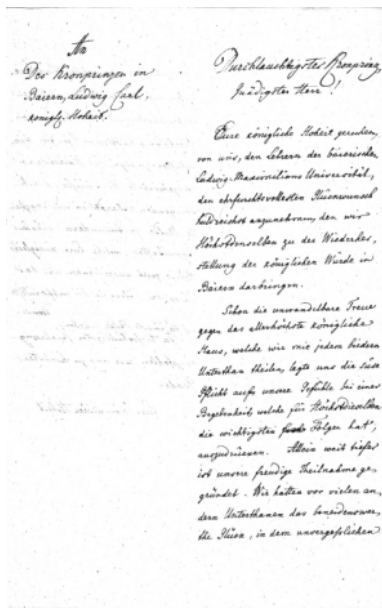 An
Des Kronprinzen in
Baiern, Ludwig Carl,
königl. Hoheit.
Durchlauchtigster Kronprinz,
Gnädigster Herr!
Eure königliche Hoheit geruhen,
von uns, den Lehrern der baierischen
Ludwig-Maximilians Universität,
den ehrfurchtvollesten Glückwunsch
huldreichst anzunehmen, den wir
Höchstdenselben zu der Wiederher,
stellung der königlichen Würde in
Baiern darbringen.
Schon die unwandelbare Treue
gegen das allerhöchste königliche
Haus, welche wir mit jedem biedern
Unterthan theilen, legte uns die süße
Pflicht auf, unsere Gefühle bei einer
Begebenheit, welche für Höchstdieselben
die wichtigsten Folgen hat,
auszudrücken. Allein weit tiefer
ist unsere freudige Theilnahme ge,
gründet. Wir hatten vor vielen an,
dern Unterthanen das beneidenswer,
the Glück, in dem unvergeßlichen